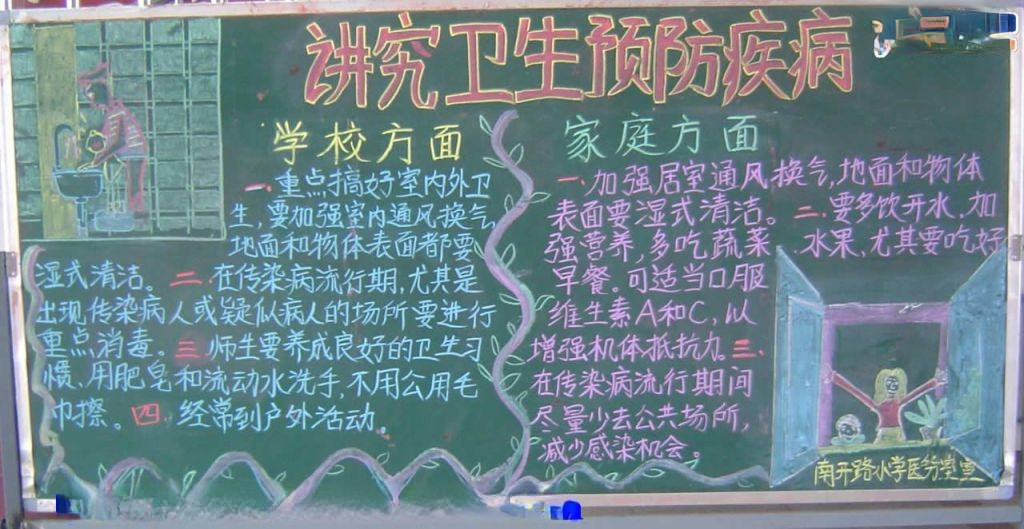 讲究卫生预防疾病
学校方面
一.重点搞好室内外卫
生,要加强室内通风换气,
地面和物体表面都要
湿式清洁。二.在传染病流行期,尤其是
出现传染病人或疑似病人的场所要进行
重点消毒。三.师生要养成良好的卫生习
惯、用肥皂和流动水洗手,不用公用毛
巾擦。四.经常到户外活动。
家庭方面
一.加强居室通风换气,地面和物体
表面要湿式清洁。二.要多饮开水、加
强营养,多吃蔬菜、水果,尤其要吃好
早餐。可适当口服
维生素A和C,以
增强机体抵抗力。三.
在传染病流行期间
尽量少去公共场所,
减少感染机会。
南开路小学医务室宣